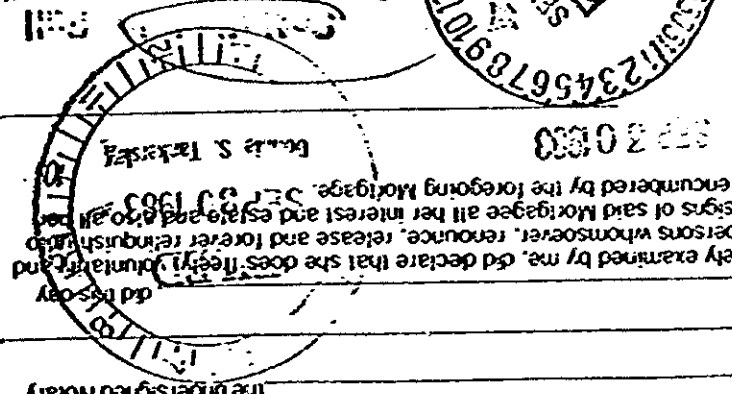 the undersigned Notary
did this day
ely examined by me, did declare that she does freely, voluntarily, and
persons whomsoever, renounce, release and forever relinquish unto
signs of said Mortgagee all her interest and estate and also all her
encumbered by the foregoing Mortgage. SEP 30 1983
SEP 30 1983 S. Tankersley